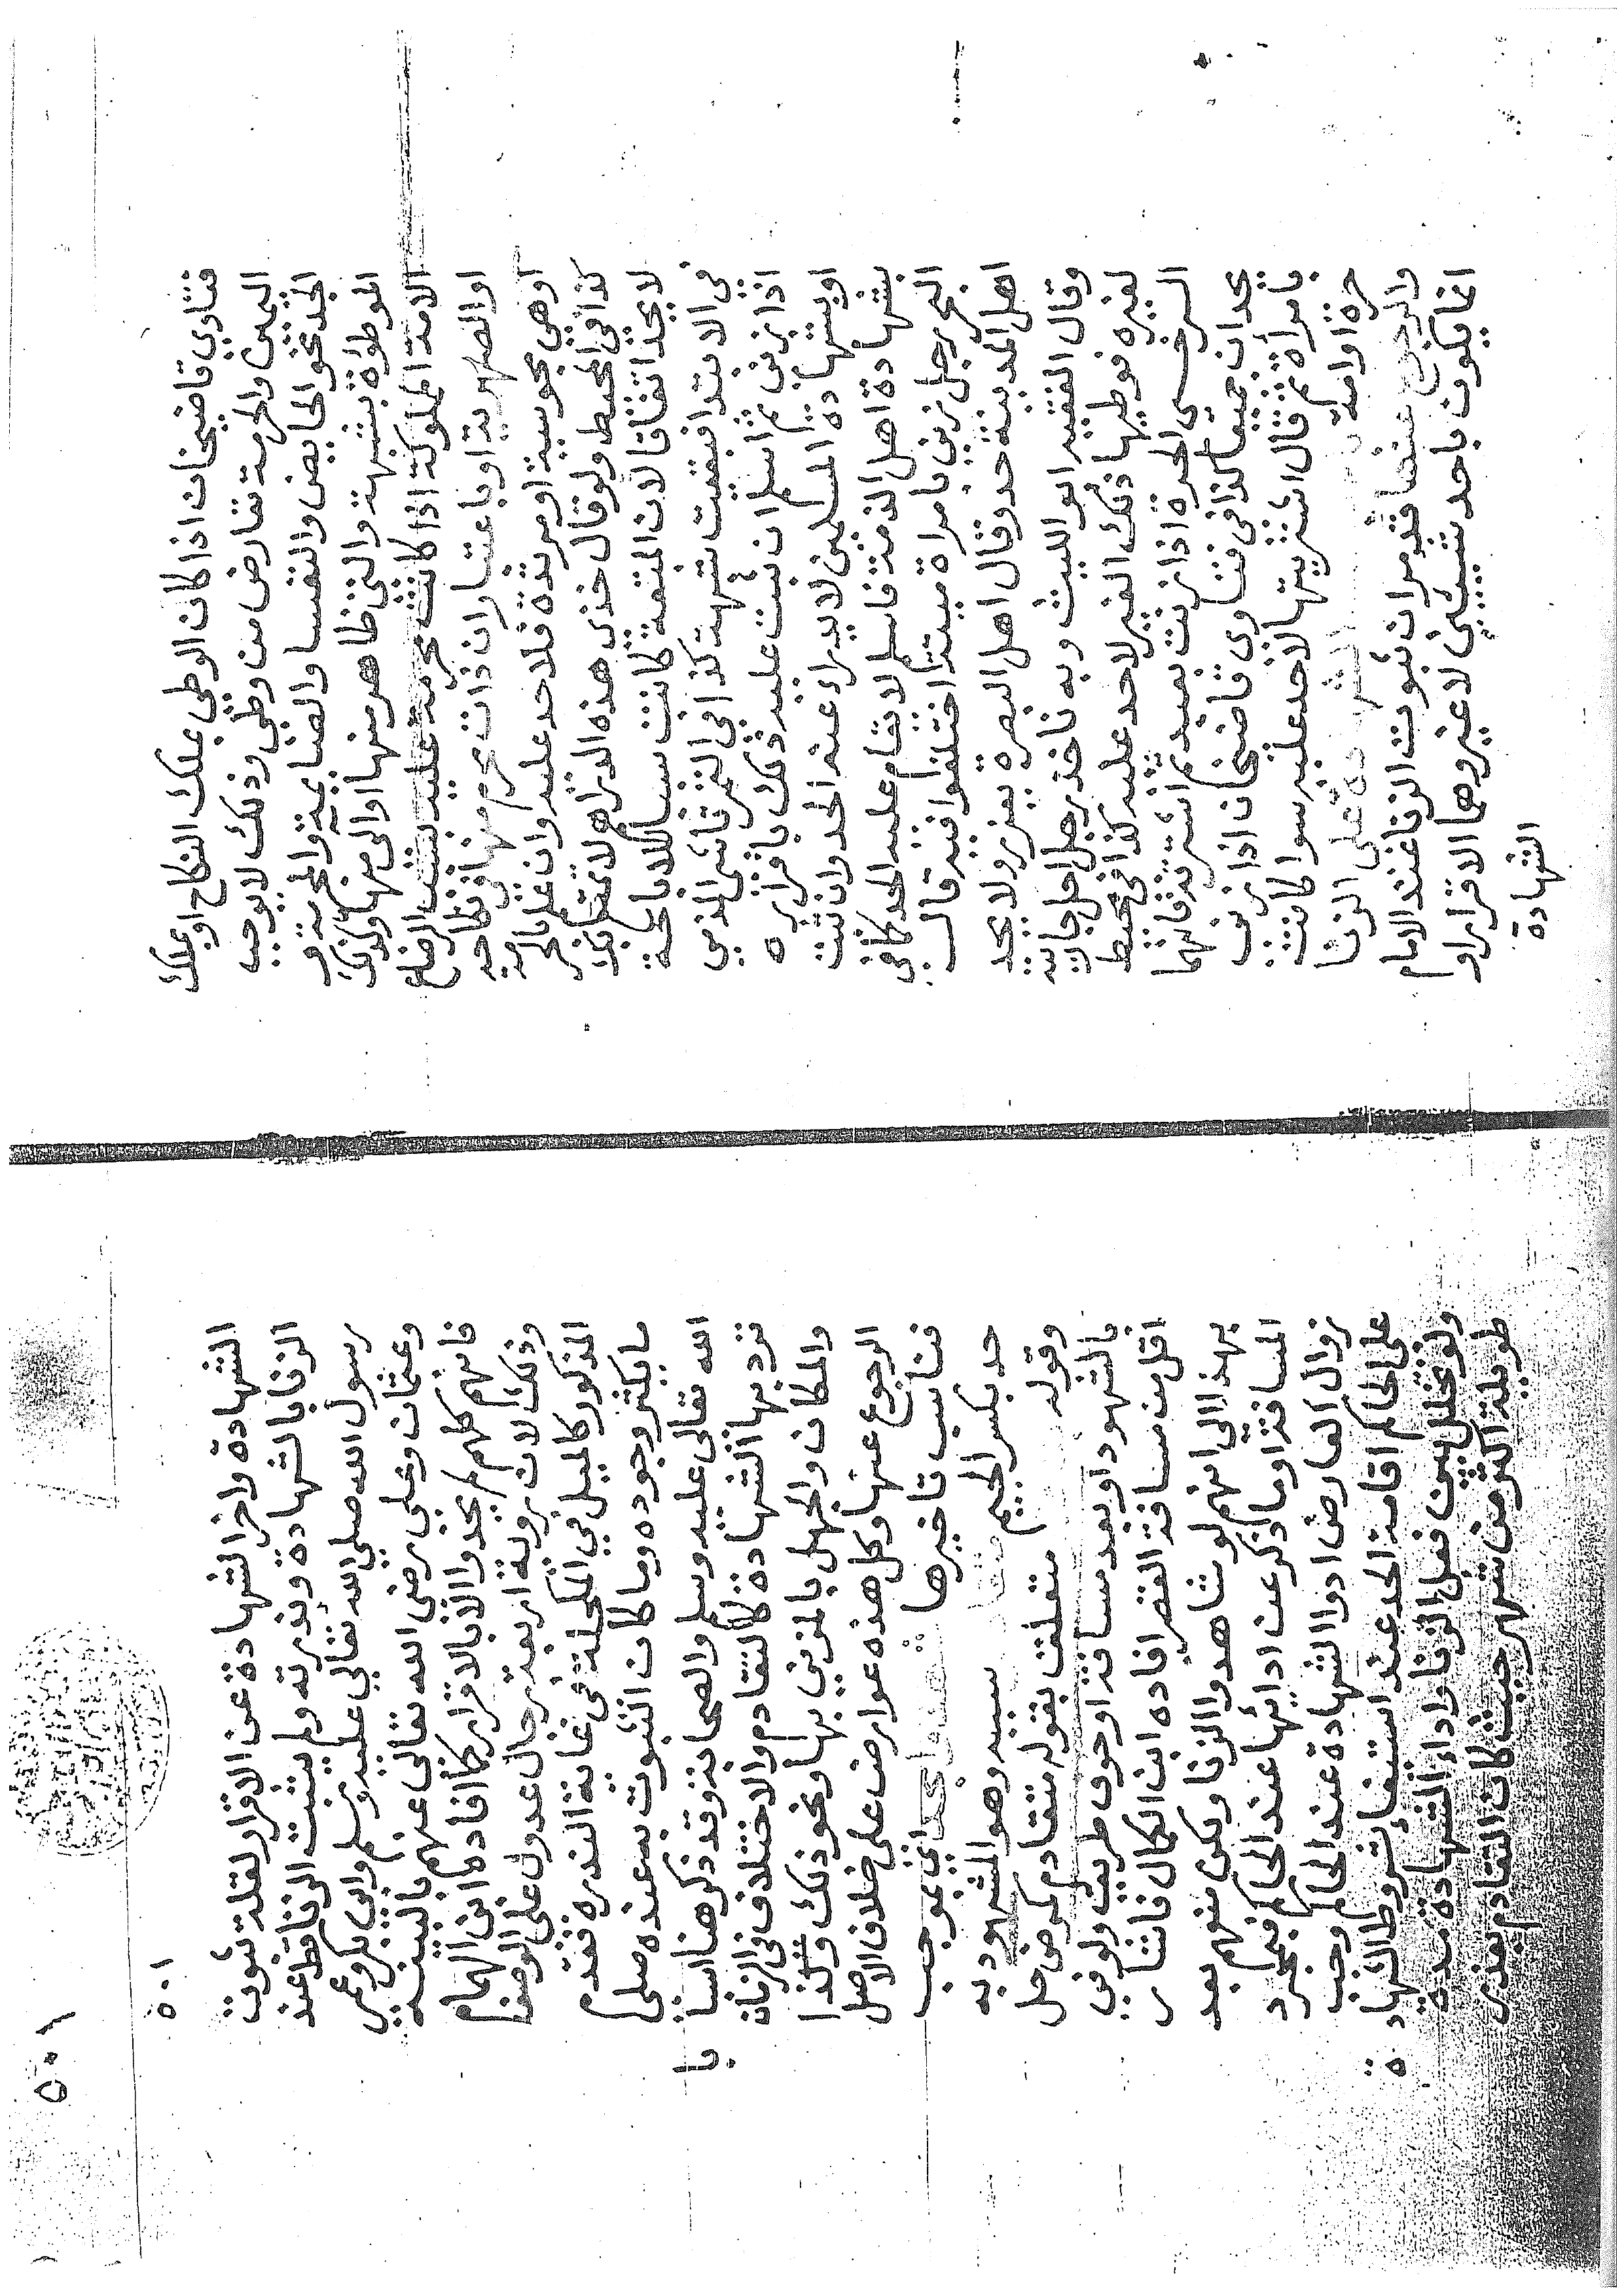 فتاوي قاضيخان اذا كان الوطي بملك النكاح او بملك
اليمين والحرمة تعارض من وطي وذلك لا يوجب
الحد نحو الحايض والنفسا والصايمة والمحرمة و
الموطؤة بشبهة والتي ظاهر منها او الى منها وكذلك
الامة المملوكة اذا كانت محرمة عليه بسبب الرضاع
او الصهرية او باعتبار ان ذات محرم منها في نكاحه
او هي مجوسية او مرتدة فلا حد عليه وان علم بالحرمة
كذا في المحيط ولو قال خذي هذه الدراهم لا تمتع بك
لا يحد اتفاقا لان المتعة كانت سببا للاباحة
في الابتدا فبقيت شبهة كذا في التمرتاشي الذمي
اذا زنى ثم اسلم ان ثبت عليه ذلك باقراره
او بشهادة المسلمين لا يدراء عنه الحد وان ثبت
بشهادة اهل الذمة فاسلم لا تقام عليه الحد كما في
البحر رجل زنى بامراة ميتة اختلفوا فيه قال
اهل المدينة حد وقال اهل البصرة يعزر ولا يحد
وقال الفقيه ابو الليث وبه ناخذ رجل احل جاريته
لغيره فوطيها ذلك الغير لا حد عليه كذا في محيط
السرخسي الحرة اذا زنت بعبد ثم اشترته فانهما
يحدان جميعا كذا في فتاوى قاضيخان اذا زنى
بامراة ثم قال اشتريتها لا حد عليه سوا كانت
حرة او امة على الزنا
والرجوع عنها قد مر ان ثبوت الزنا عند الامام
انما يكون باحد شيئين لا غير وهما الاقرار او
الشهادة
٥٠١
٥٠١
الشهادة واخر الشهادة عن الاقرار لقلة ثبوت
الزنا بالشهادة وندرته ولم يثبت الزنا قط عند
رسول الله صلى الله تعالى عليه وسلم وابي بكر وعمر
وعثمان وعلي رضى الله تعالى عنهم بالبينة
فانهم كلهم لم يحدوا الا بالاقرار كما افاده ابن الهمام
وذلك لان رؤية اربعة رجال عدول على الوصف
المذكور كالميل في المكحلة في غاية الندرة فقدم
ما يكثر وجوده وما كان الثبوت به عنده صلى
الله تعالى عليه وسلم والصحابة وقد ذكر هنا اسبا
با
ترد بها الشهادة كالتقادم والاختلاف في الزمان
والمكان والجهل بالمزني بها ونحو ذلك وكذا
الرجوع عنها وكل هذه عوارض على خلاف الاصل
فناسب تاخيرها اي بموجب
حد بكسر الجيم سببه وهو المشهود به
وقوله متعلق بقوله متقادم كمرض حل
بالشهود او بعد مسافة او خوف طريق ولو في
اقل من مسافة القصر افاده ابن الكمال فاشار
بهذا الى انهم لو شاهدوا الزنا ولكن منهم بعد
المسافة او ما ذكر عن ادائها عند الحاكم فبمجرد
زوال العارض ادوا الشهادة عند الحاكم وجب
على الحاكم اقامة الحد عند استيفاء شروط الشهاد
ة
ولو تخلل بين فعل الزنا واداء الشهادة مدة
طويلة اكثر من شهر حيث كان التقادم بعذر